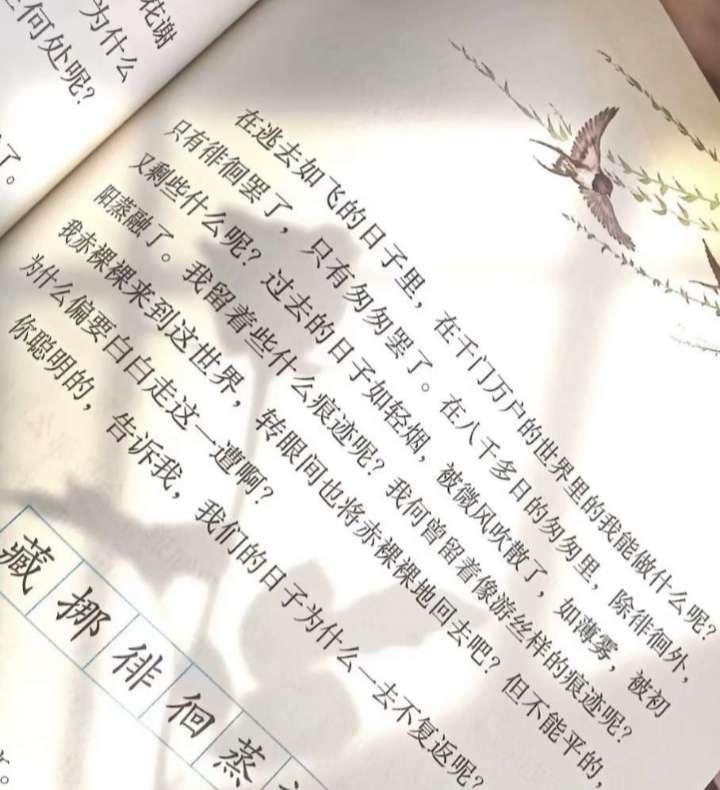 花谢
为什么
何处呢？
了。
在逃去如飞的日子里，在千门万户的世界里的我能做什么呢？
只有徘徊罢了，只有匆匆罢了。在八千多日的匆匆里，除徘徊外，
又剩些什么呢？过去的日子如轻烟，被微风吹散了，如薄雾，被初
阳蒸融了。我留着些什么痕迹呢？我何曾留着像游丝样的痕迹呢？
我赤裸裸来到这世界，转眼间也将赤裸裸地回去吧？但不能平的，
为什么偏要白白走这一遭啊？
你聪明的，告诉我，我们的日子为什么一去不复返呢？
藏挪徘徊蒸